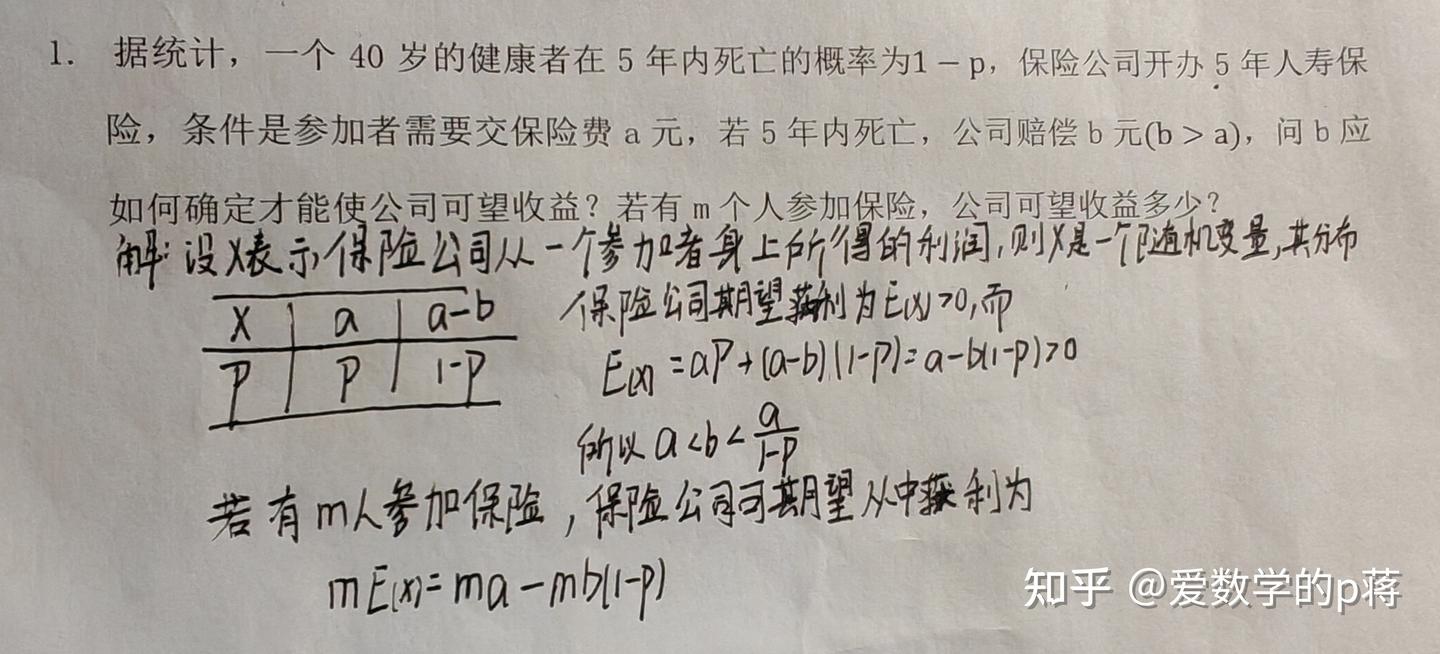 1. 据统计，一个 40 岁的健康者在 5 年内死亡的概率为1 − p，保险公司开办 5 年人寿保
险，条件是参加者需要交保险费 a 元，若 5 年内死亡，公司赔偿 b 元(b > a)，问 b 应
如何确定才能使公司可望收益？若有 m 个人参加保险，公司可望收益多少？
解: 设X表示保险公司从一个参加者身上所得的利润，则X是一个随机变量，其分布
X a a-b
P p 1-p
保险公司期望获利为E(X)>0,而
E(X) = ap+(a-b)(1-p)=a-b(1-p)>0
所以 a<b<a/(1-p)
若有m人参加保险，保险公司可期望从中获利为
mE(X)=ma-mb(1-p)
知乎 @爱数学的p蒋